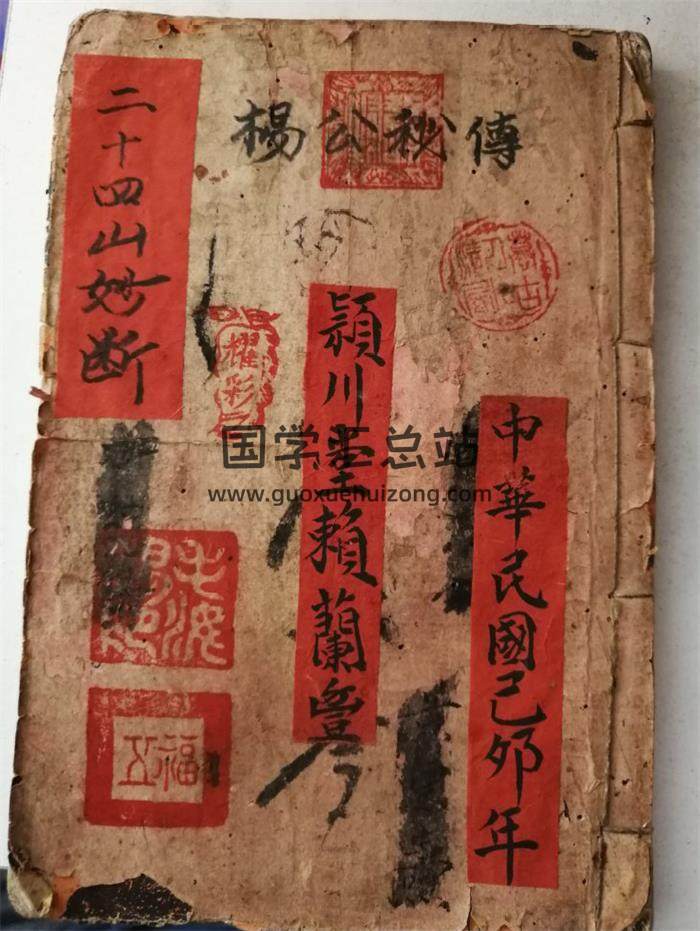 楊公秘傳
中華民國己夘年
頴川堂賴蘭
二十四山妙断
耀彩
五福
国学汇总站
www.guoxuehuizong.com